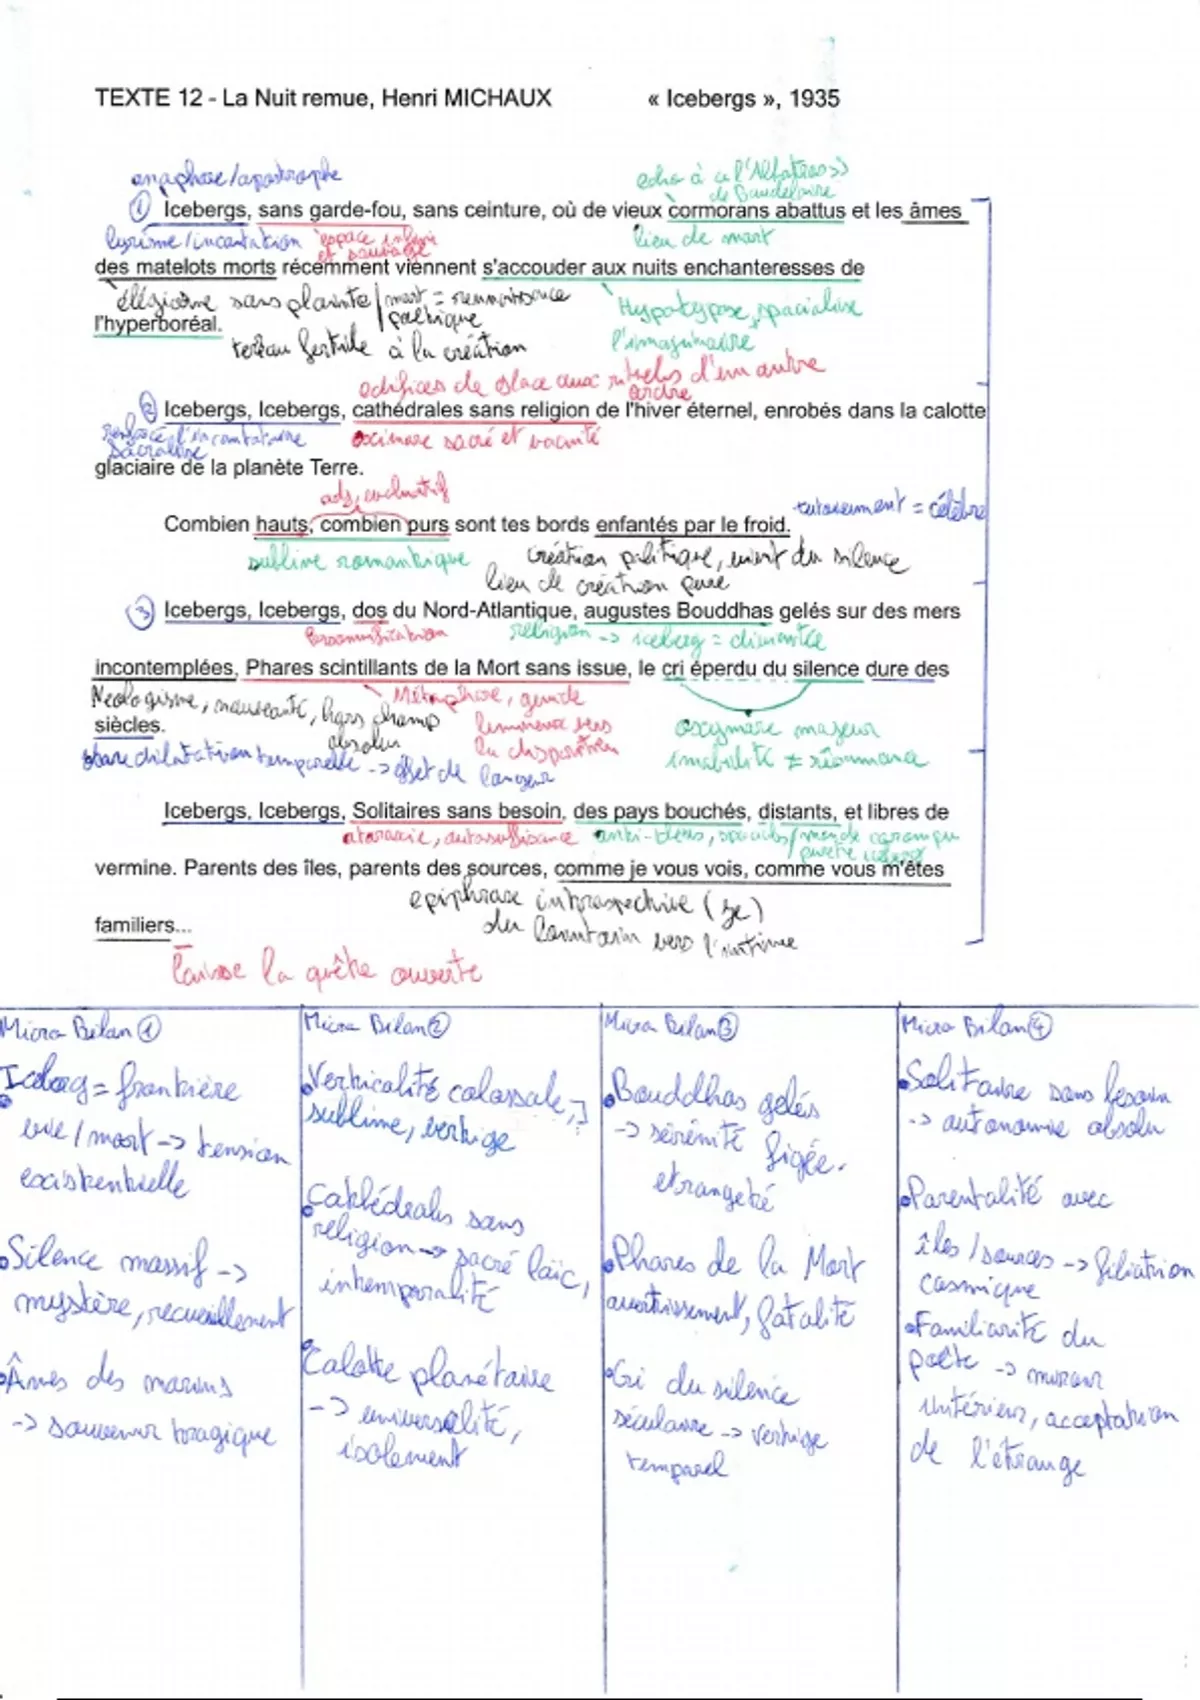 TEXTE 12 - La Nuit remue, Henri MICHAUX « Icebergs », 1935
anaphore/apostrophe
écho à « l'Albatros »
de Baudelaire
① Icebergs, sans garde-fou, sans ceinture, où de vieux cormorans abattus et les âmes
lyrisme/incantation espace
et sauvage
lieu de mort
des matelots morts récemment viennent s'accouder aux nuits enchanteresses de
sans plainte/mort = renaissance
poétique
Hypotypose, spacialise
l'imaginaire
l'hyperboréal.
terreau fertile à la création
édifices de glace aux rituels d'un autre
ordre
② Icebergs, Icebergs, cathédrales sans religion de l'hiver éternel, enrobés dans la calotte
sacralise
sacré et vacuité
glaciaire de la planète Terre.
adj
tutoiement = célèbre
Combien hauts, combien purs sont tes bords enfantés par le froid.
sublime romantique
création du silence
lieu de création pure
③ Icebergs, Icebergs, dos du Nord-Atlantique, augustes Bouddhas gelés sur des mers
Personnification
religion -> iceberg =
incontemplées, Phares scintillants de la Mort sans issue, le cri éperdu du silence dure des
Néologisme, nouveauté, hors champ
absolu
Métaphore, guide
lumineux vers
la disparition
oxymore majeur
immobilité ≠ résonnance
siècles.
dilatation temporelle -> effet de
Icebergs, Icebergs, Solitaires sans besoin, des pays bouchés, distants, et libres de
ataraxie, autosuffisance
vermine. Parents des îles, parents des sources, comme je vous vois, comme vous m'êtes
epiphrase introspective (je)
du lointain vers l'intime
familiers...
laisse la quête ouverte
Micro Bilan ①
Iceberg = frontière
vie/mort -> tension
existentielle
Silence massif ->
mystère, recueillement
Âmes des marins
-> souvenir tragique
Micro Bilan ②
Verticalité colossale,
sublime, vertige
Cathédrales sans
religion -> sacré laïc,
intemporalité
Calotte planétaire
-> universalité,
isolement
Micro Bilan ③
Bouddhas gelés
-> sérénité figée.
étrangeté
Phares de la Mort
avertissement, fatalité
Cri du silence
séculaire -> vertige
temporel
Micro Bilan ④
Solitaire sans besoin
-> autonomie absolu
Parentalité avec
îles/sources -> filiation
cosmique
Familiarité du
poète -> miroir
intérieur, acceptation
de l'étrange